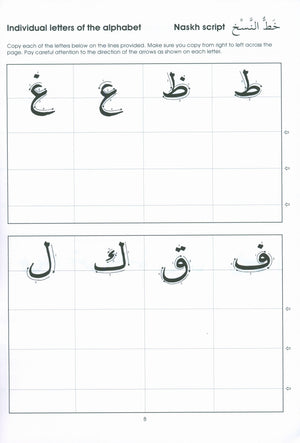 Individual letters of the alphabet Naskh script خَطُّ النَّسْخ
Copy each of the letters below on the lines provided. Make sure you copy from right to left across the
page. Pay careful attention to the direction of the arrows as shown on each letter.
ط ظ ع غ
ف ق ك ل